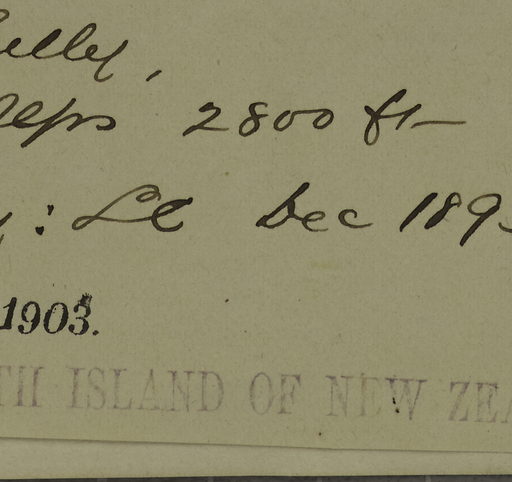 2800 ft
: LC Dec 189
1903.
TH ISLAND OF NEW ZEA